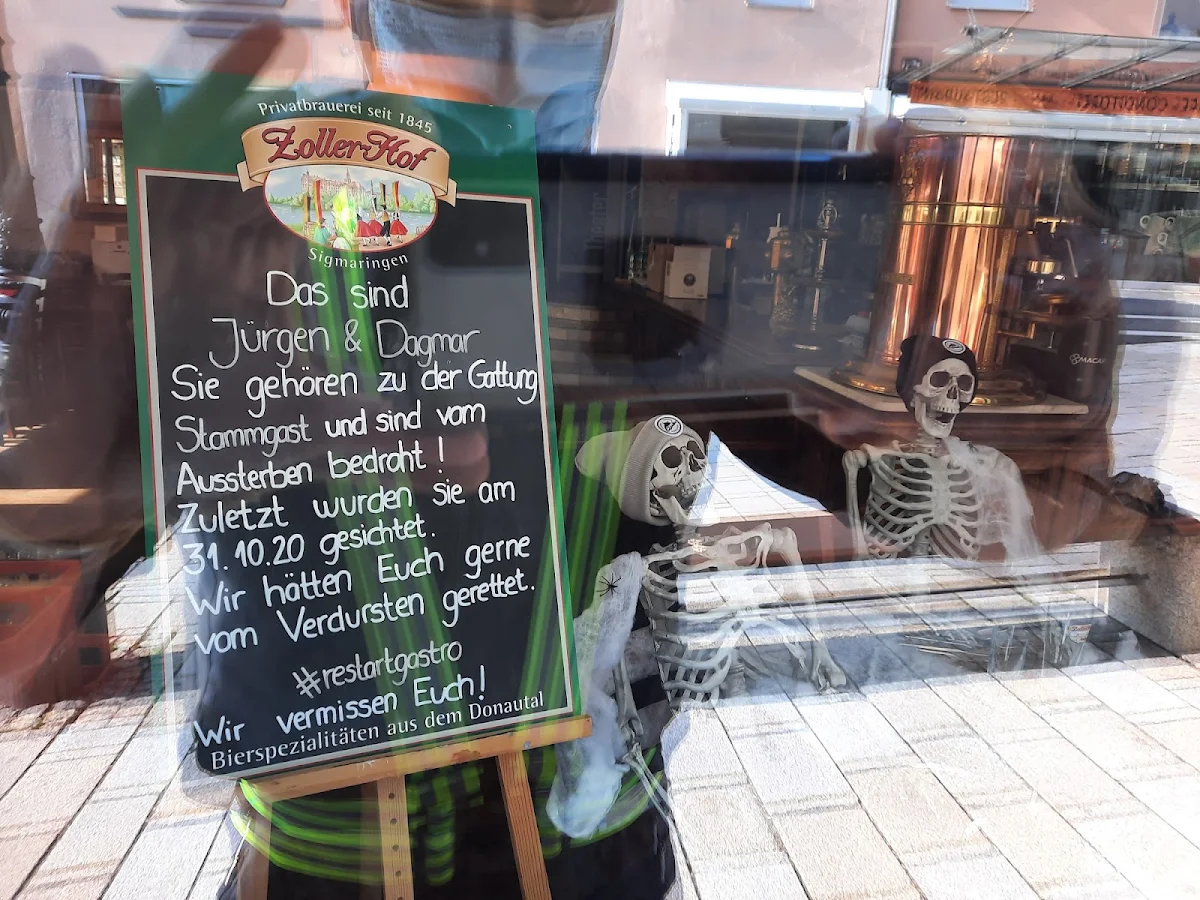 Privatbrauerei seit 1845
Zoller-Hof
Sigmaringen
Das sind
Jürgen & Dagmar
Sie gehören zu der Gattung
Stammgast und sind vom
Aussterben bedroht !
Zuletzt wurden sie am
31.10.20 gesichtet.
Wir hätten Euch gerne
vom Verdursten gerettet.
#restartgastro
Wir vermissen Euch!
Bierspezialitäten aus dem Donautal